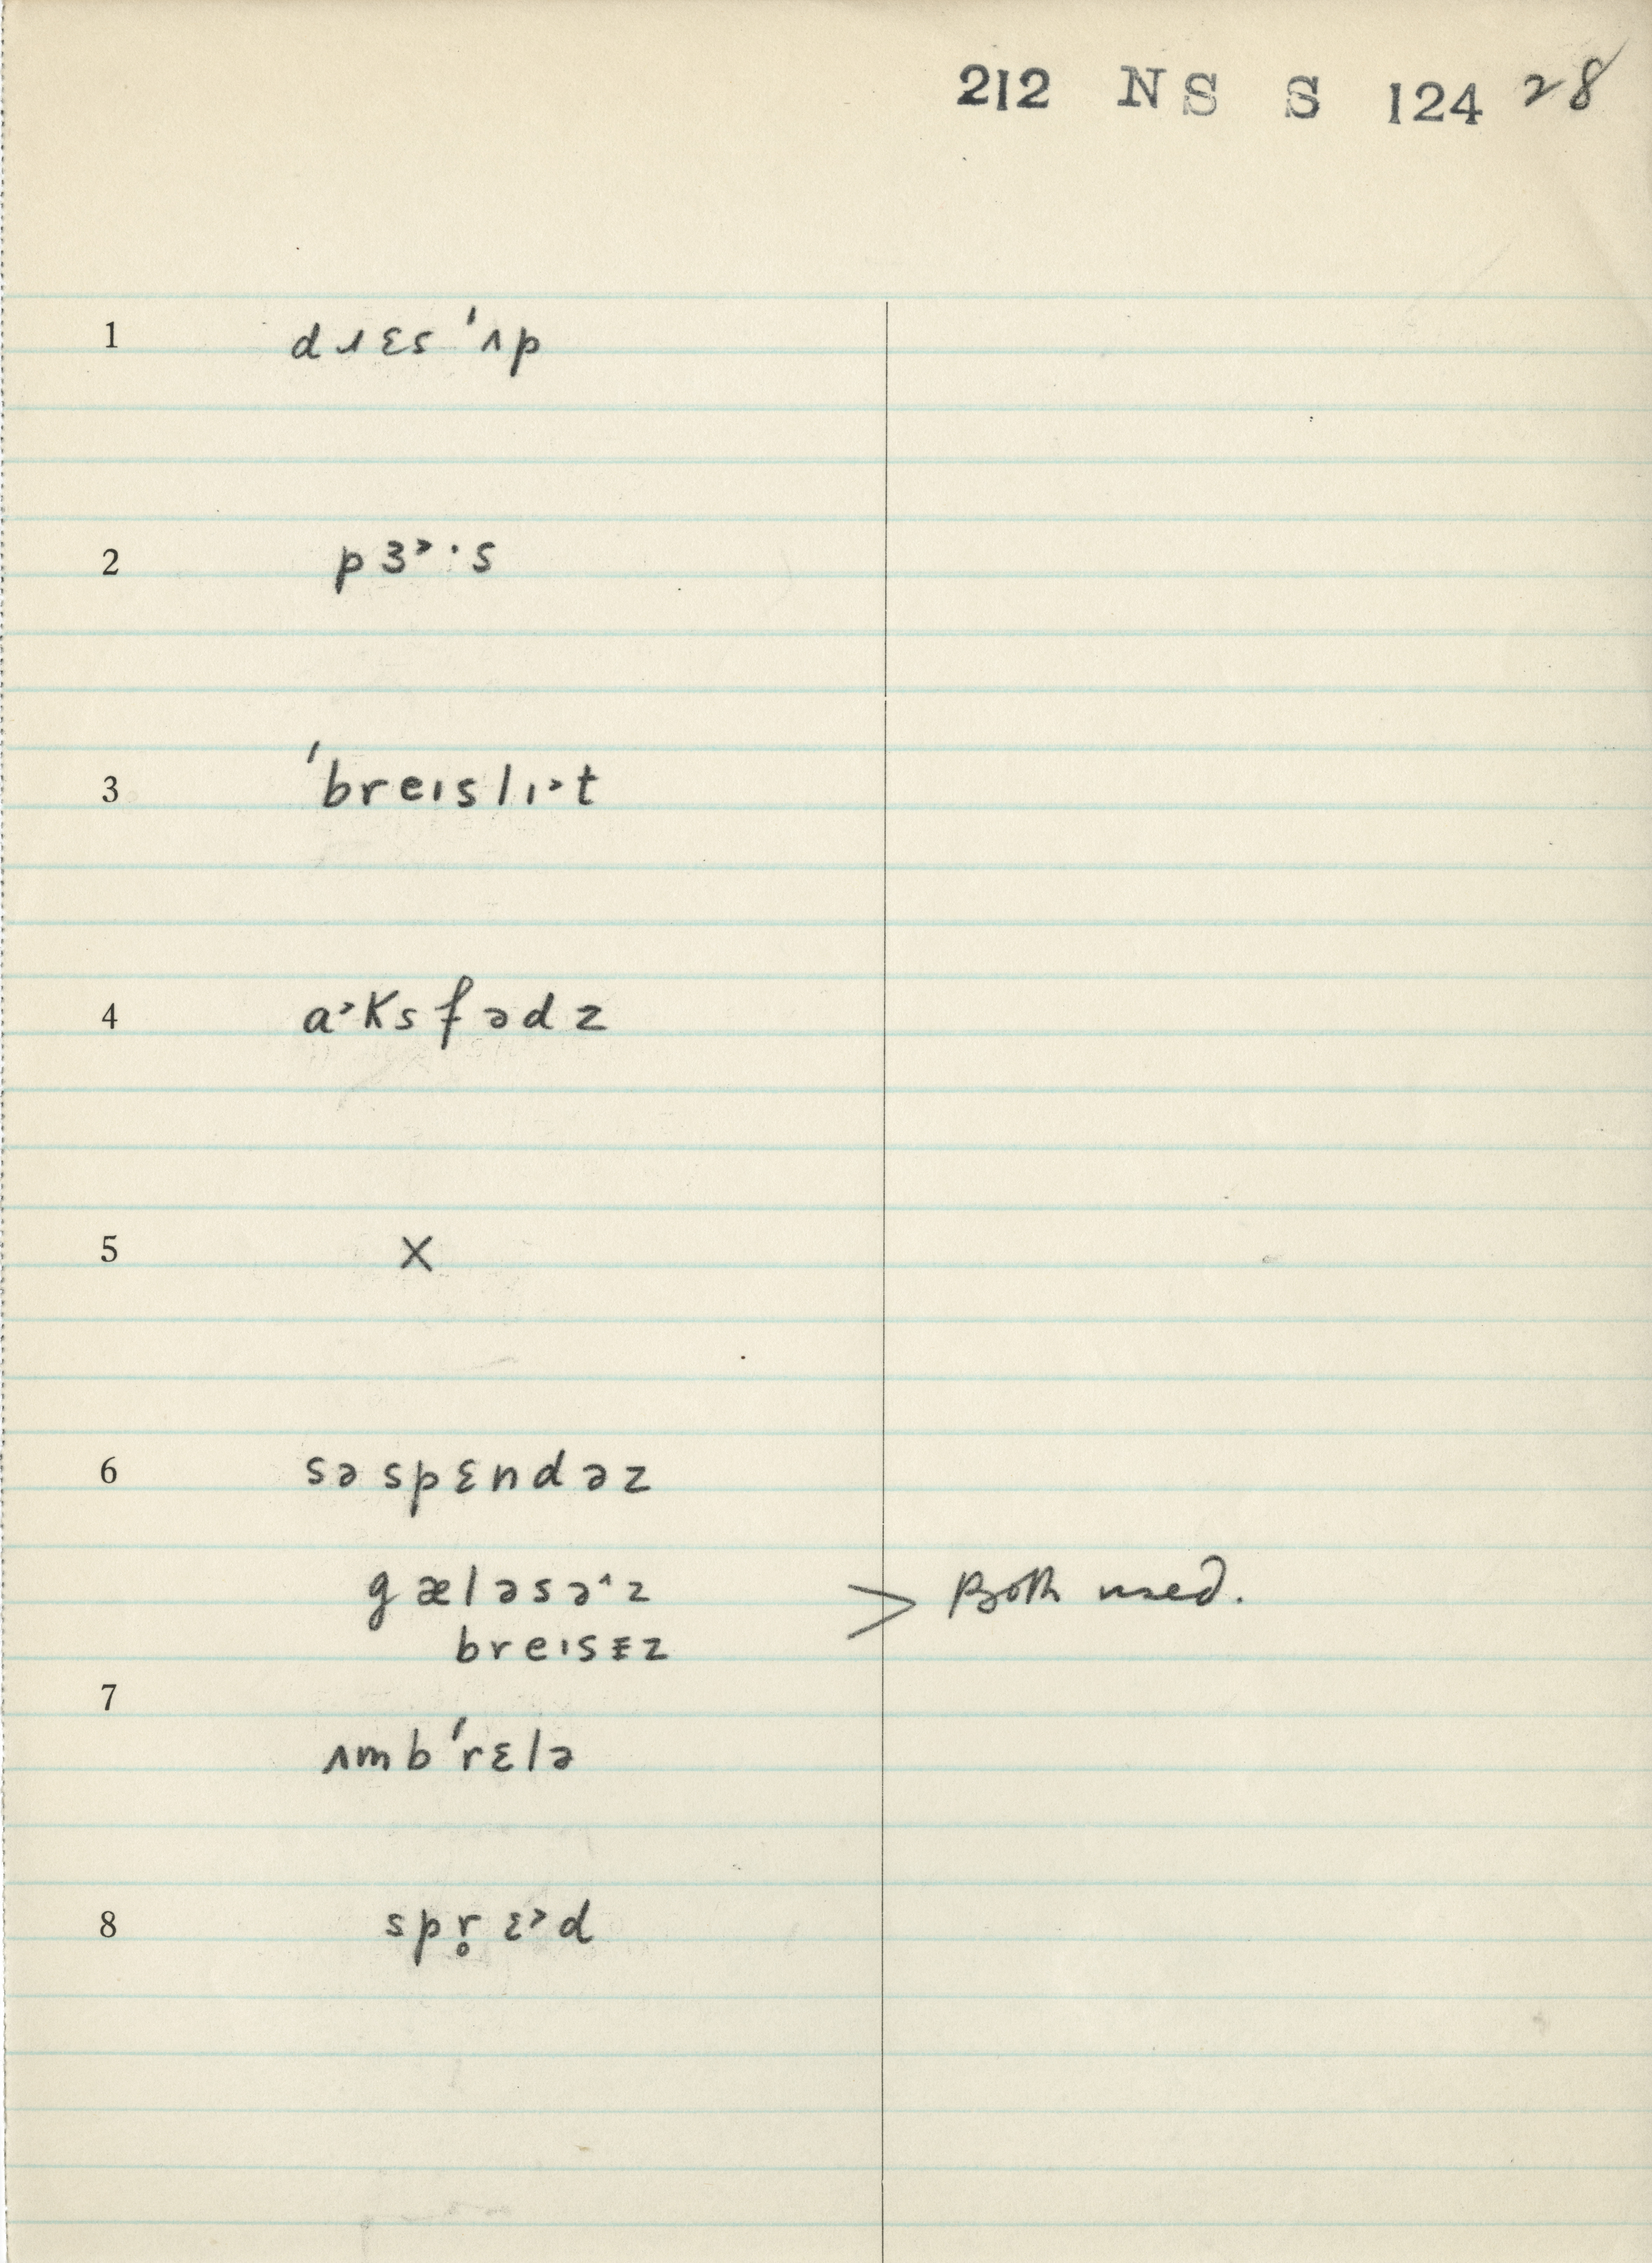 212 NS S 124 28
1 dɹɛs ˈʌp
2 pɜ˃·s
3 ˈbreɪslɪ˃t
4 a˃ksfədz
5 X
6 səspɛndəz
gæləsə˄z > Both used.
breɪsɪ̵z
7
ʌmbˈrɛlə
8 spr̥ɛ˃d